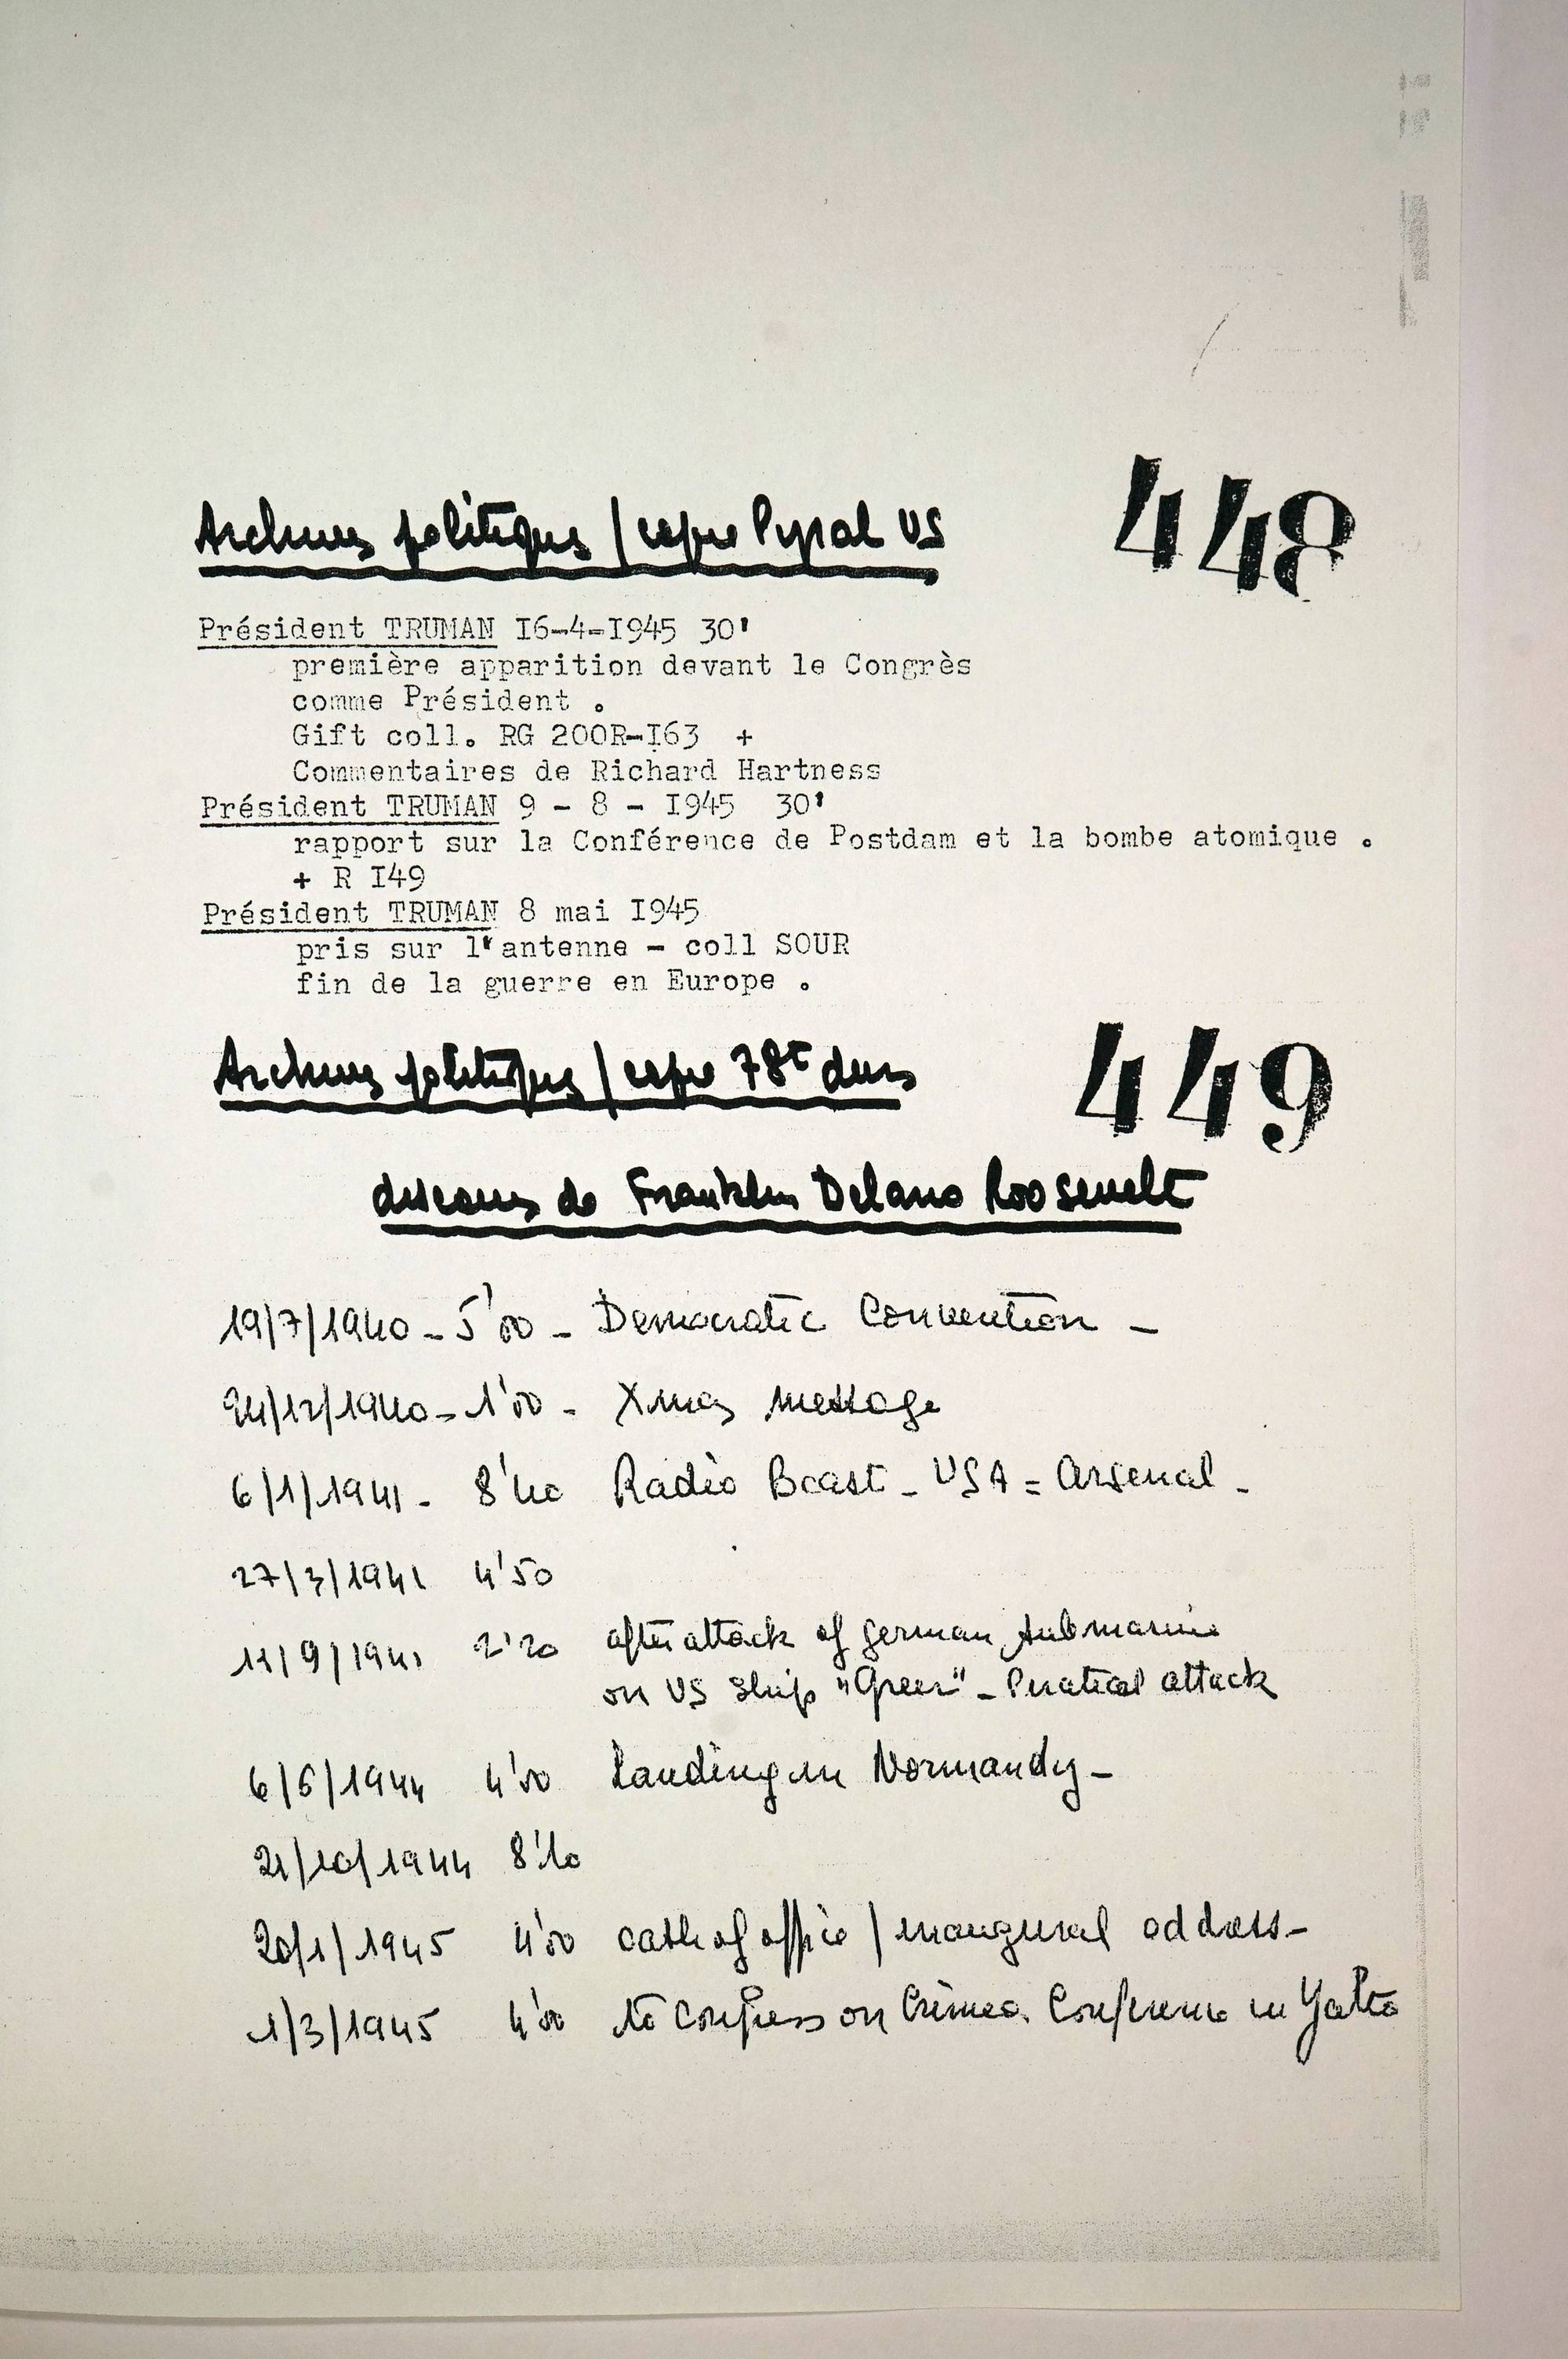 Archives politiques / copie Pyral US
448
Président TRUMAN I6-4-I945 30'
première apparition devant le Congrès
comme Président .
Gift coll. RG 200R-I63 +
Commentaires de Richard Hartness
Président TRUMAN 9 - 8 - I945 30'
rapport sur la Conférence de Postdam et la bombe atomique .
+ R I49
Président TRUMAN 8 mai I945
pris sur l'antenne - coll SOUR
fin de la guerre en Europe .
Archives politiques / copie 78t durs
449
discours de Franklin Delano Roosevelt
19/7/1940 - 5'00 - Democratic Convention -
24/12/1940 - 1'00 - Xmas message
6/1/1941 - 8'40 Radio Bcast - USA = Arsenal -
27/3/1941 4'50
11/9/1941 2'20 after attack of german submarine
on US ship "Greer" - Piratical attack
6/6/1944 4'00 Landing in Normandy -
21/10/1944 8'10
20/1/1945 4'00 oath of office / inaugural address -
1/3/1945 4'00 to Congress on Crimea Conference in Yalta